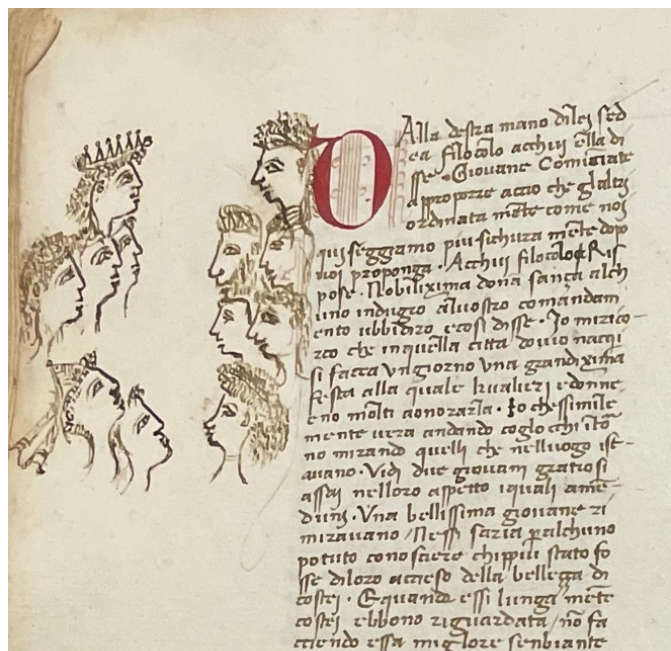 DAlla destra mano dilei sed
ea filocolo acchui ella di
sse . Giovane Cominciate
a proporre accio che glaltri
ordinata mēte come noi
qui seggiamo piu sichura mēte dopo
uoi proponga . Acchui filocolo Ris
pose . Nobilixima dōna sança alch
uno indugio aluostro comandam
ento ubbidiro ecosi disse . Io miricor
co che inquella citta douio nacqui
si facea un giorno una grandixima
festa alla quale kualierj edonne
eno molti aonorarla . Io chessimile
mente uera andando coglocchi ītō
no mirando quelli che nelluogo ist
auano . Vidi due giouani gratiosi
assai nelloro aspetto iquali amē
duni . Vna bellissima giouane ri
mirauano / Nessi saria p alchuno
potuto conosciere chippiu stato fo
sse diloro acceso della belleçça di
costei . Equando essi lunga mēte
costei ebbono riguardata / nō fa
cciendo essa migliore senbiante